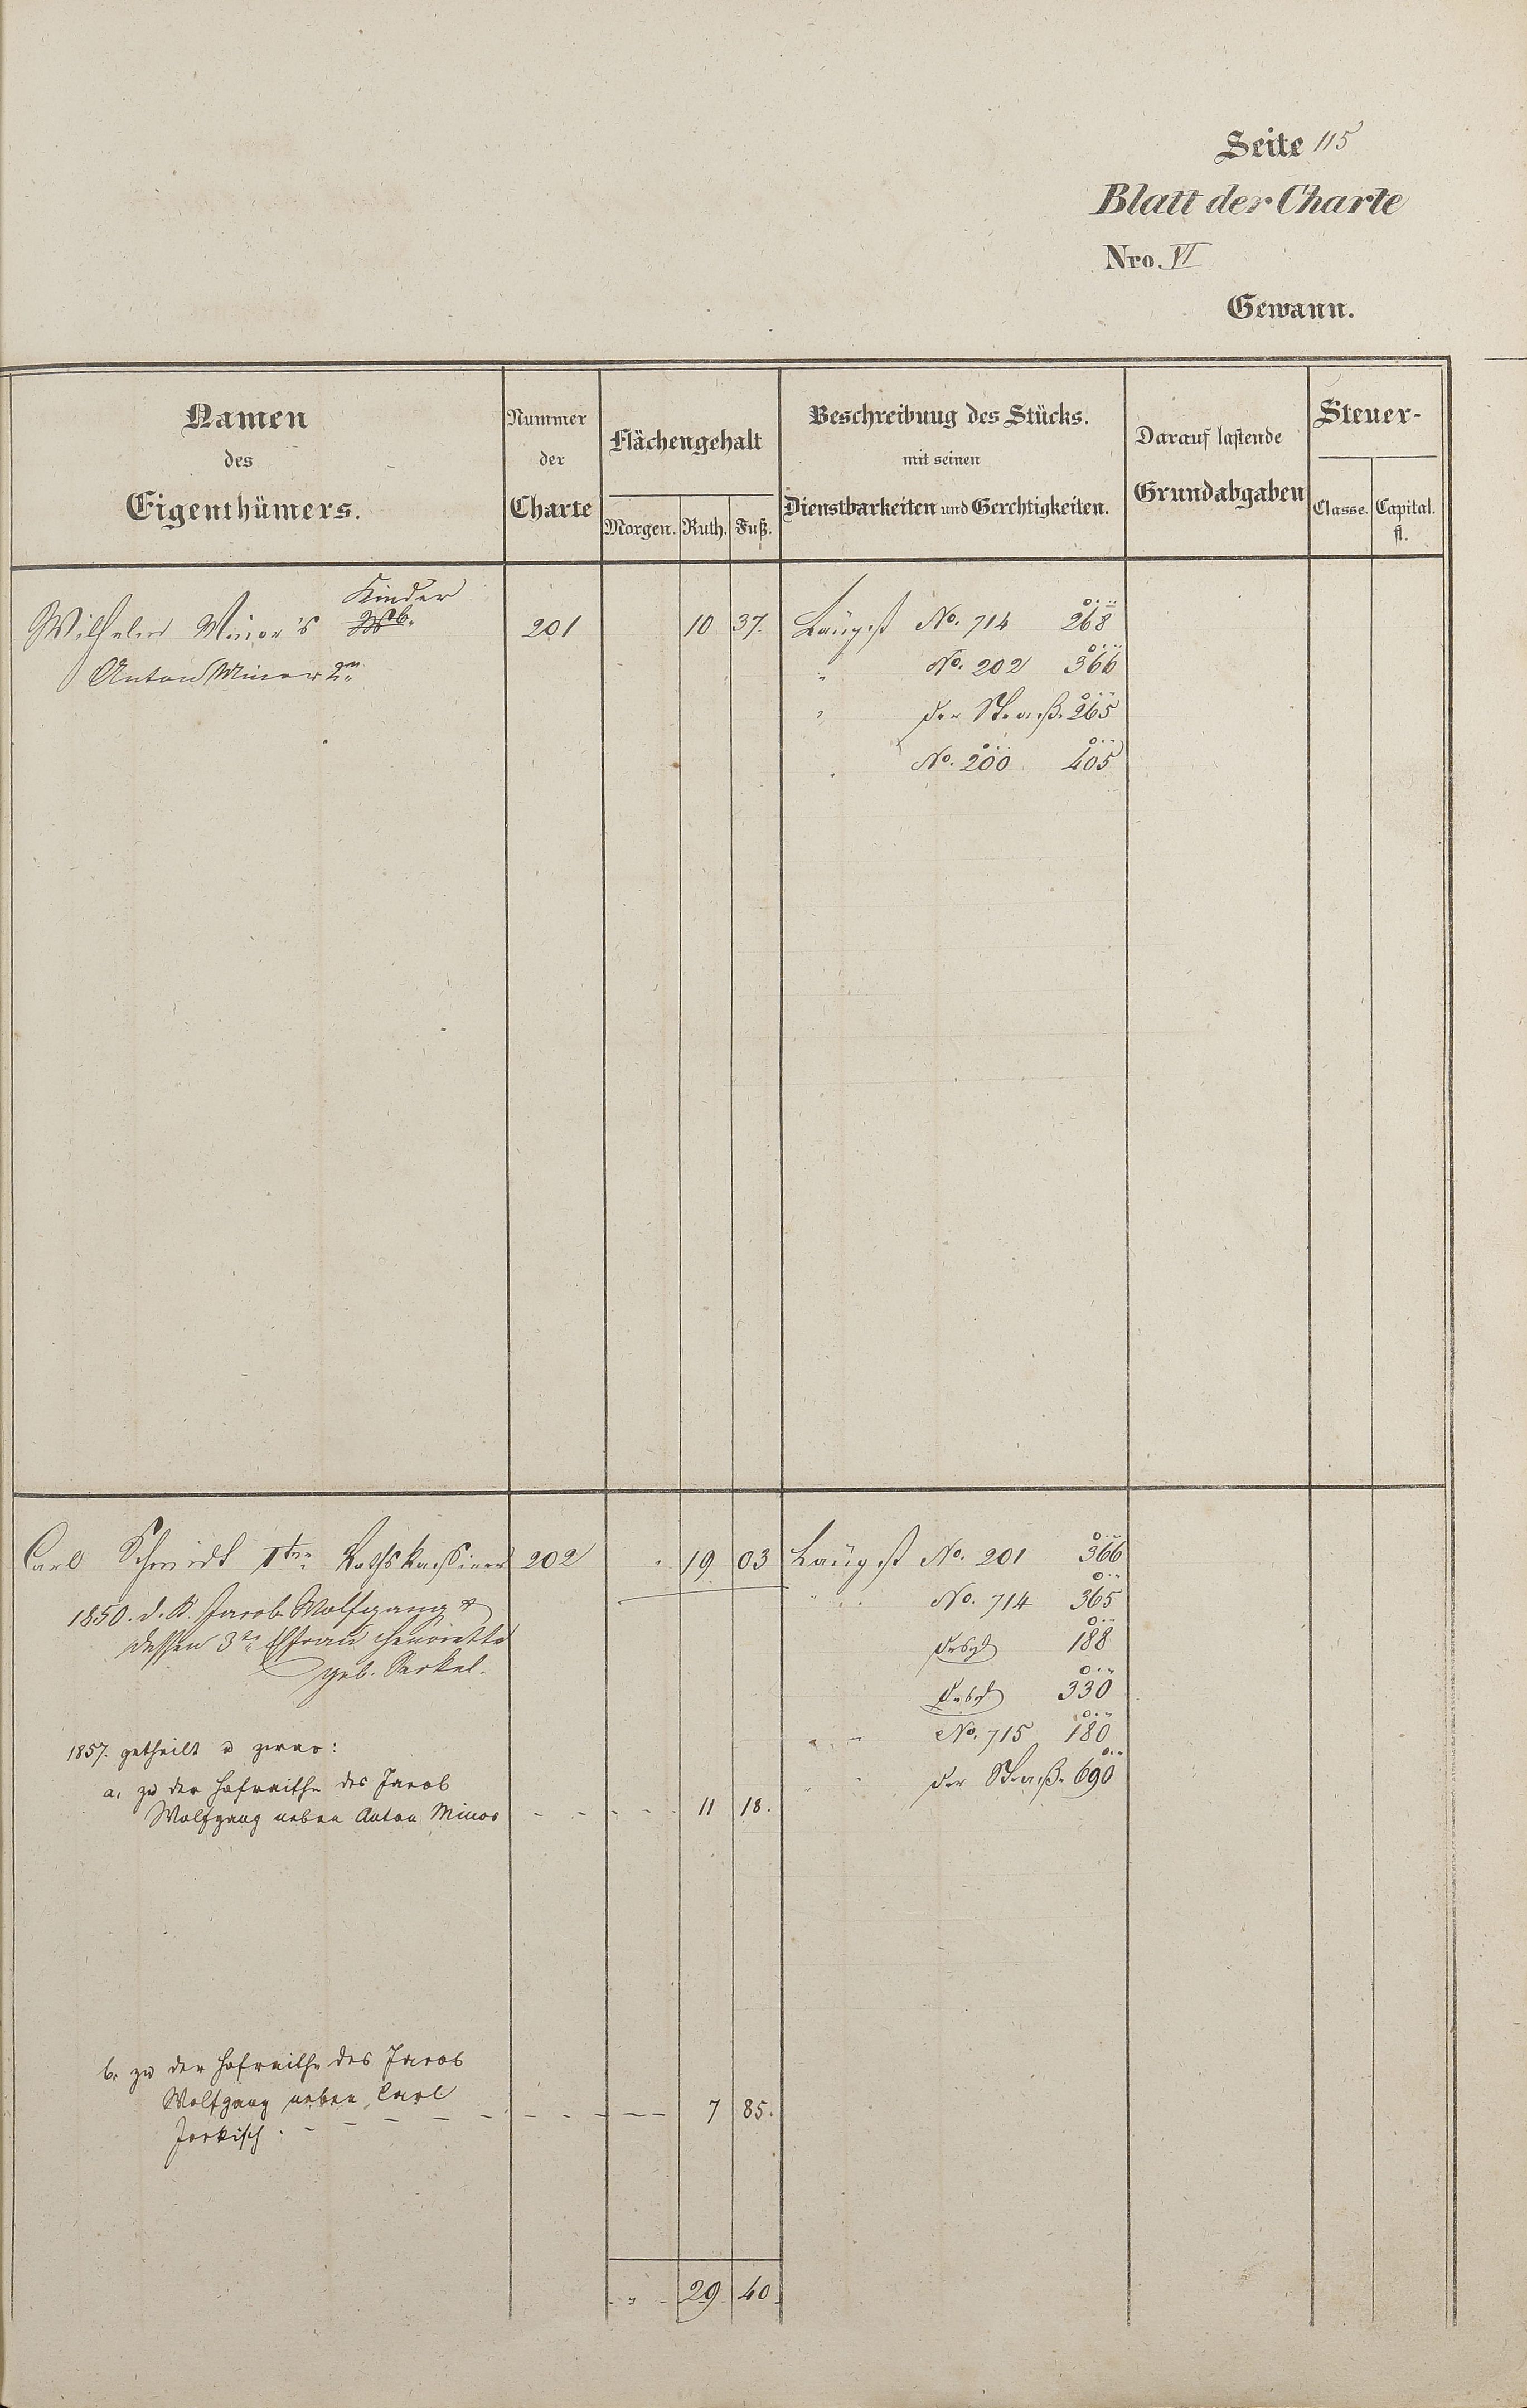 Seite 115
Blatt der Charte
Nro. VI
Gewann.
Namen
des
Eigenthümers.
Nummer
der
Charte
Flächengehalt
Morgen. Ruth. Fuß.
Beschreibung des Stücks.
mit seinen
Dienstbarkeiten und Gerechtigkeiten.
Darauf lastende
Grundabgaben
Steuer-
Classe. Capital.
fl.
Kinder
Wilhelm Minor's Wb. 201 10 37. Längst No. 714 268
Anton Minor 2n " No. 202 366
" der Straß. 265
" No. 200 405
Carl Schmidt Iter 202 " 19 03 Längst No. 201 366
1850. d. K. Jacob Wolfgang &
dessen 3te Ehfrau Henriette
geb. Serkel.
" No. 714 365
desgl 188
desgl 330
" No. 715 180
" der Straß. 690
1857. getheilt u zwar:
a, zu der Hofraithe des Jacob
Wolfgang neben Anton Minor - - - - - 11 18.
b, zu der Hofraithe des Jacob
Wolfgang neben Carl
Jorkisch. - - - - - - - - 7 85.
" 29 40